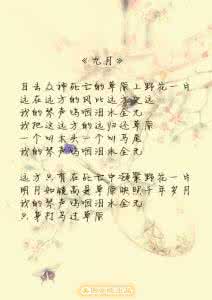 《九月》
目击众神死亡的草原上野花一片
远在远方的风比远方更远
我的琴声呜咽泪水全无
我把这远方的远归还草原
一个叫木头一个叫马尾
我的琴声呜咽泪水全无
远方只有在死亡中凝聚野花一片
明月如镜高悬草原映照千年岁月
我的琴声呜咽泪水全无
只身打马过草原